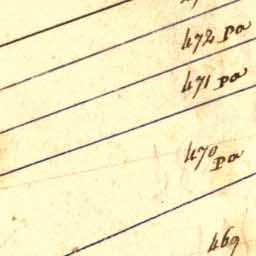 472 pa
471 pa
470 pa
469